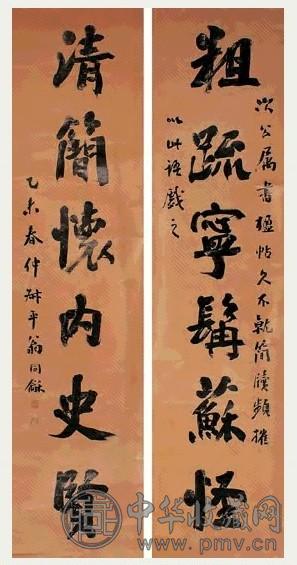 次公屬書楹帖久不就簡牘頻摧
粗疏寧髯蘇
以此語戲之
清簡懷內史賢
乙未春仲叔平翁同龢
中华收藏网
www.pmv.cn